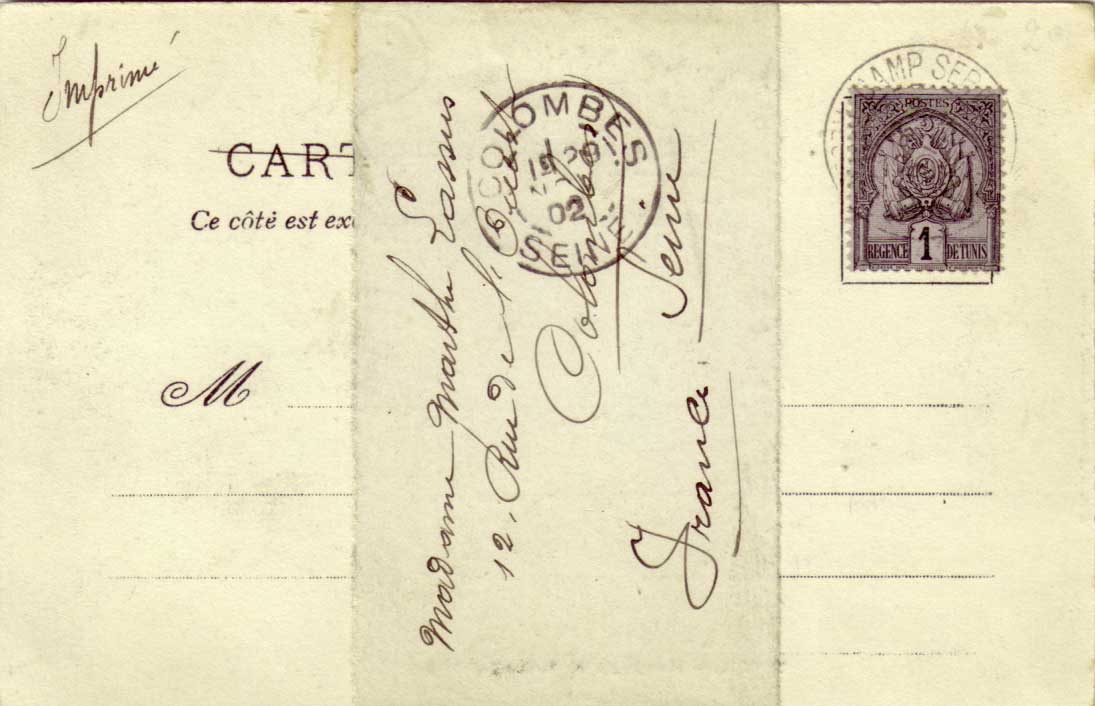 Imprimé
CART
Ce côté est ex
M
Madame Marthe Lassus
12. Rue de l'
Colombes
Seine
France
COLOMBES
02
SEINE
CAMP SER
POSTES
REGENCE 1 DE TUNIS